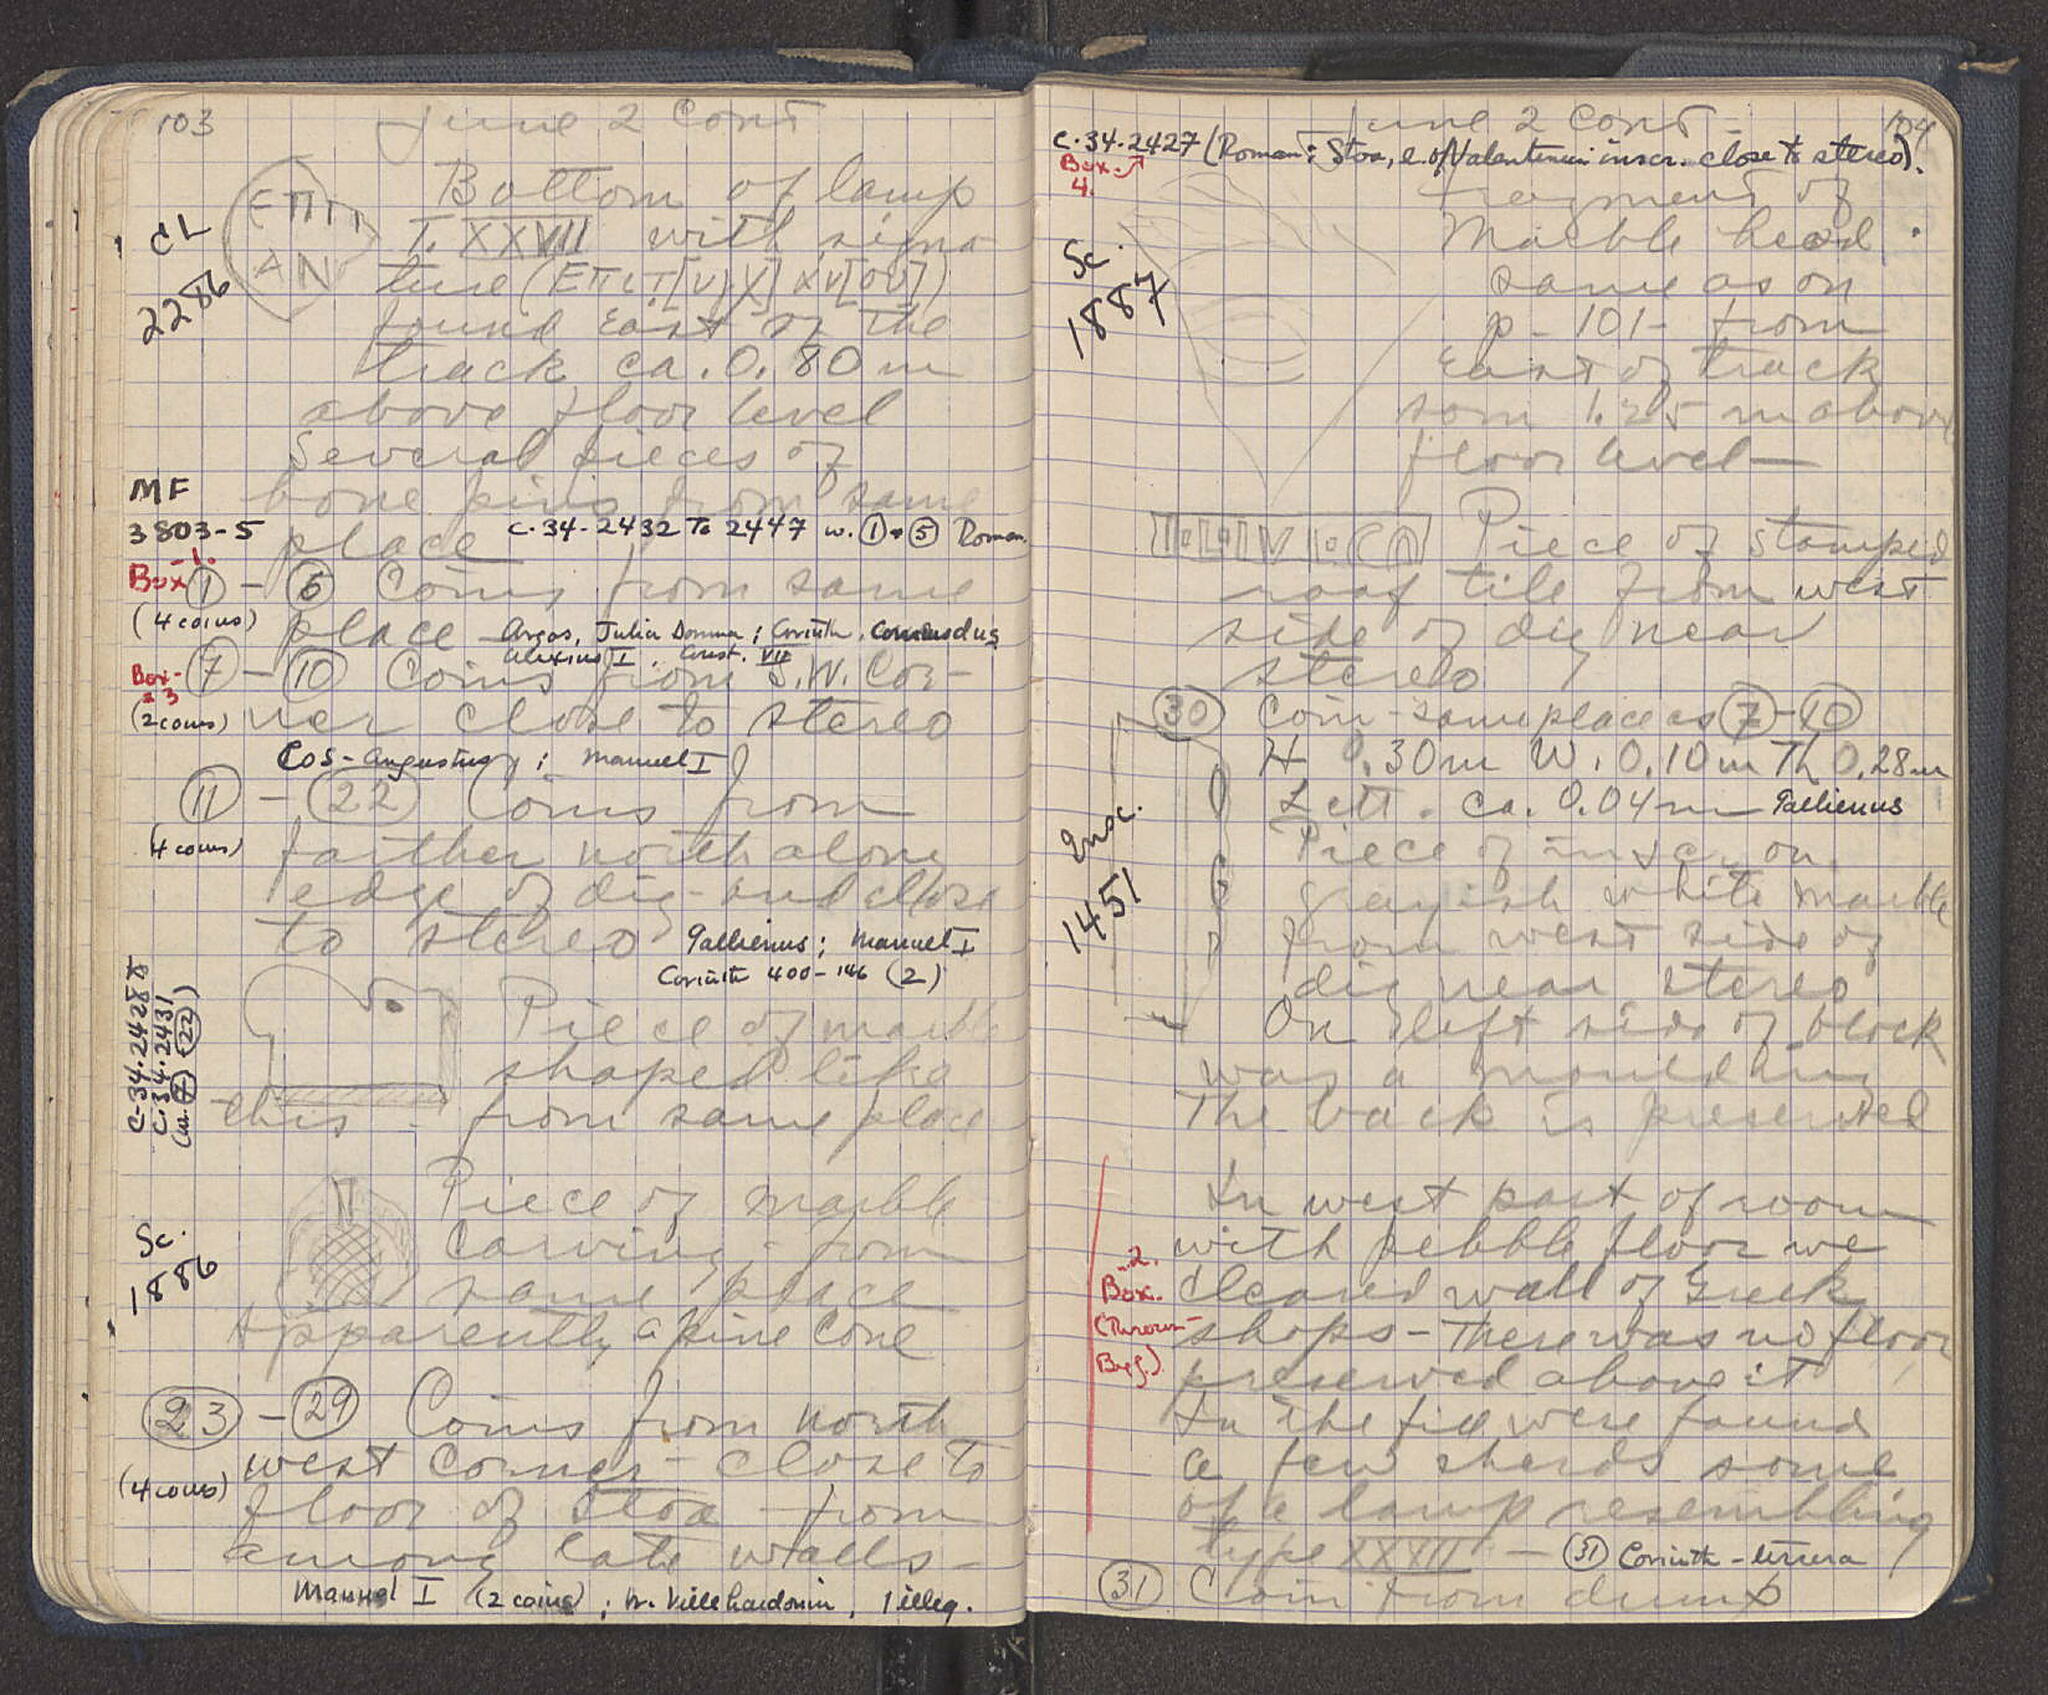 103
June 2 Cont
CL
2286
ΕΠΙΤ
ΑΝ
Bottom of lamp
T. XXVII with signa
ture (ΕΠΙΤ[
found East of the
track ca. 0.80 m
above floor level
Several pieces of
bone pins from same
place
MF
3803-5
C-34-2432 To 2447 w. 1 + 5 Roman.
Box 1.
1 - 6 Coins from same
(4 coins)
place
Argos, Julia Domna; Corinth, Commodus
Alexius I, Const. VII
Box-
= 3
7 - 10 Coins from S.W. Cor-
(2 coins)
ner close to stereo
Cos - Augustus; Manuel I
11 - 22 Coins from
(4 coins)
farther north along
edge of dig - and close
to stereo
Gallienus; Manuel I
Corinth 400-146 (2)
C-34-2428
C-34-2431
Piece of marble
shaped like
this - from same place
Sc.
1886
Piece of marble
carving - from
same place
Apparently a pine cone
23 - 29 Coins from north
west corner - close to
(4 coins)
floor of stoa - from
among late walls -
Manuel I (2 coins); W. Villehardouin, 1 illeg.
June 2 Cont -
104
C-34-2427 (Roman: Stoa, e. of Valentinian inscr. close to stereo).
Box
4.
Sc.
1887
Fragment of
Marble head
same as on
p - 101 - from
East of track
som 1.25 m above
floor level
Piece of stamped
roof tile from west
side of dig near
stereo
30 Coin - same place as 7 - 10
H 0.30m W. 0.10m Th 0.28m
Lett. ca. 0.04m
Gallienus
Insc.
1451
Piece of insc. on
grayish white marble
from west side of
dig near stereo
On left side of block
was a moulding
The back is preserved
In west part of room
with pebble floor we
cleared wall of Greek
shops - There was no floor
preserved above it
In the fill were found
a few sherds some
of a lamp resembling
type XXXII -
2.
Box.
(Thrown
Byz.)
31 Corinth -
31 Coin from dump